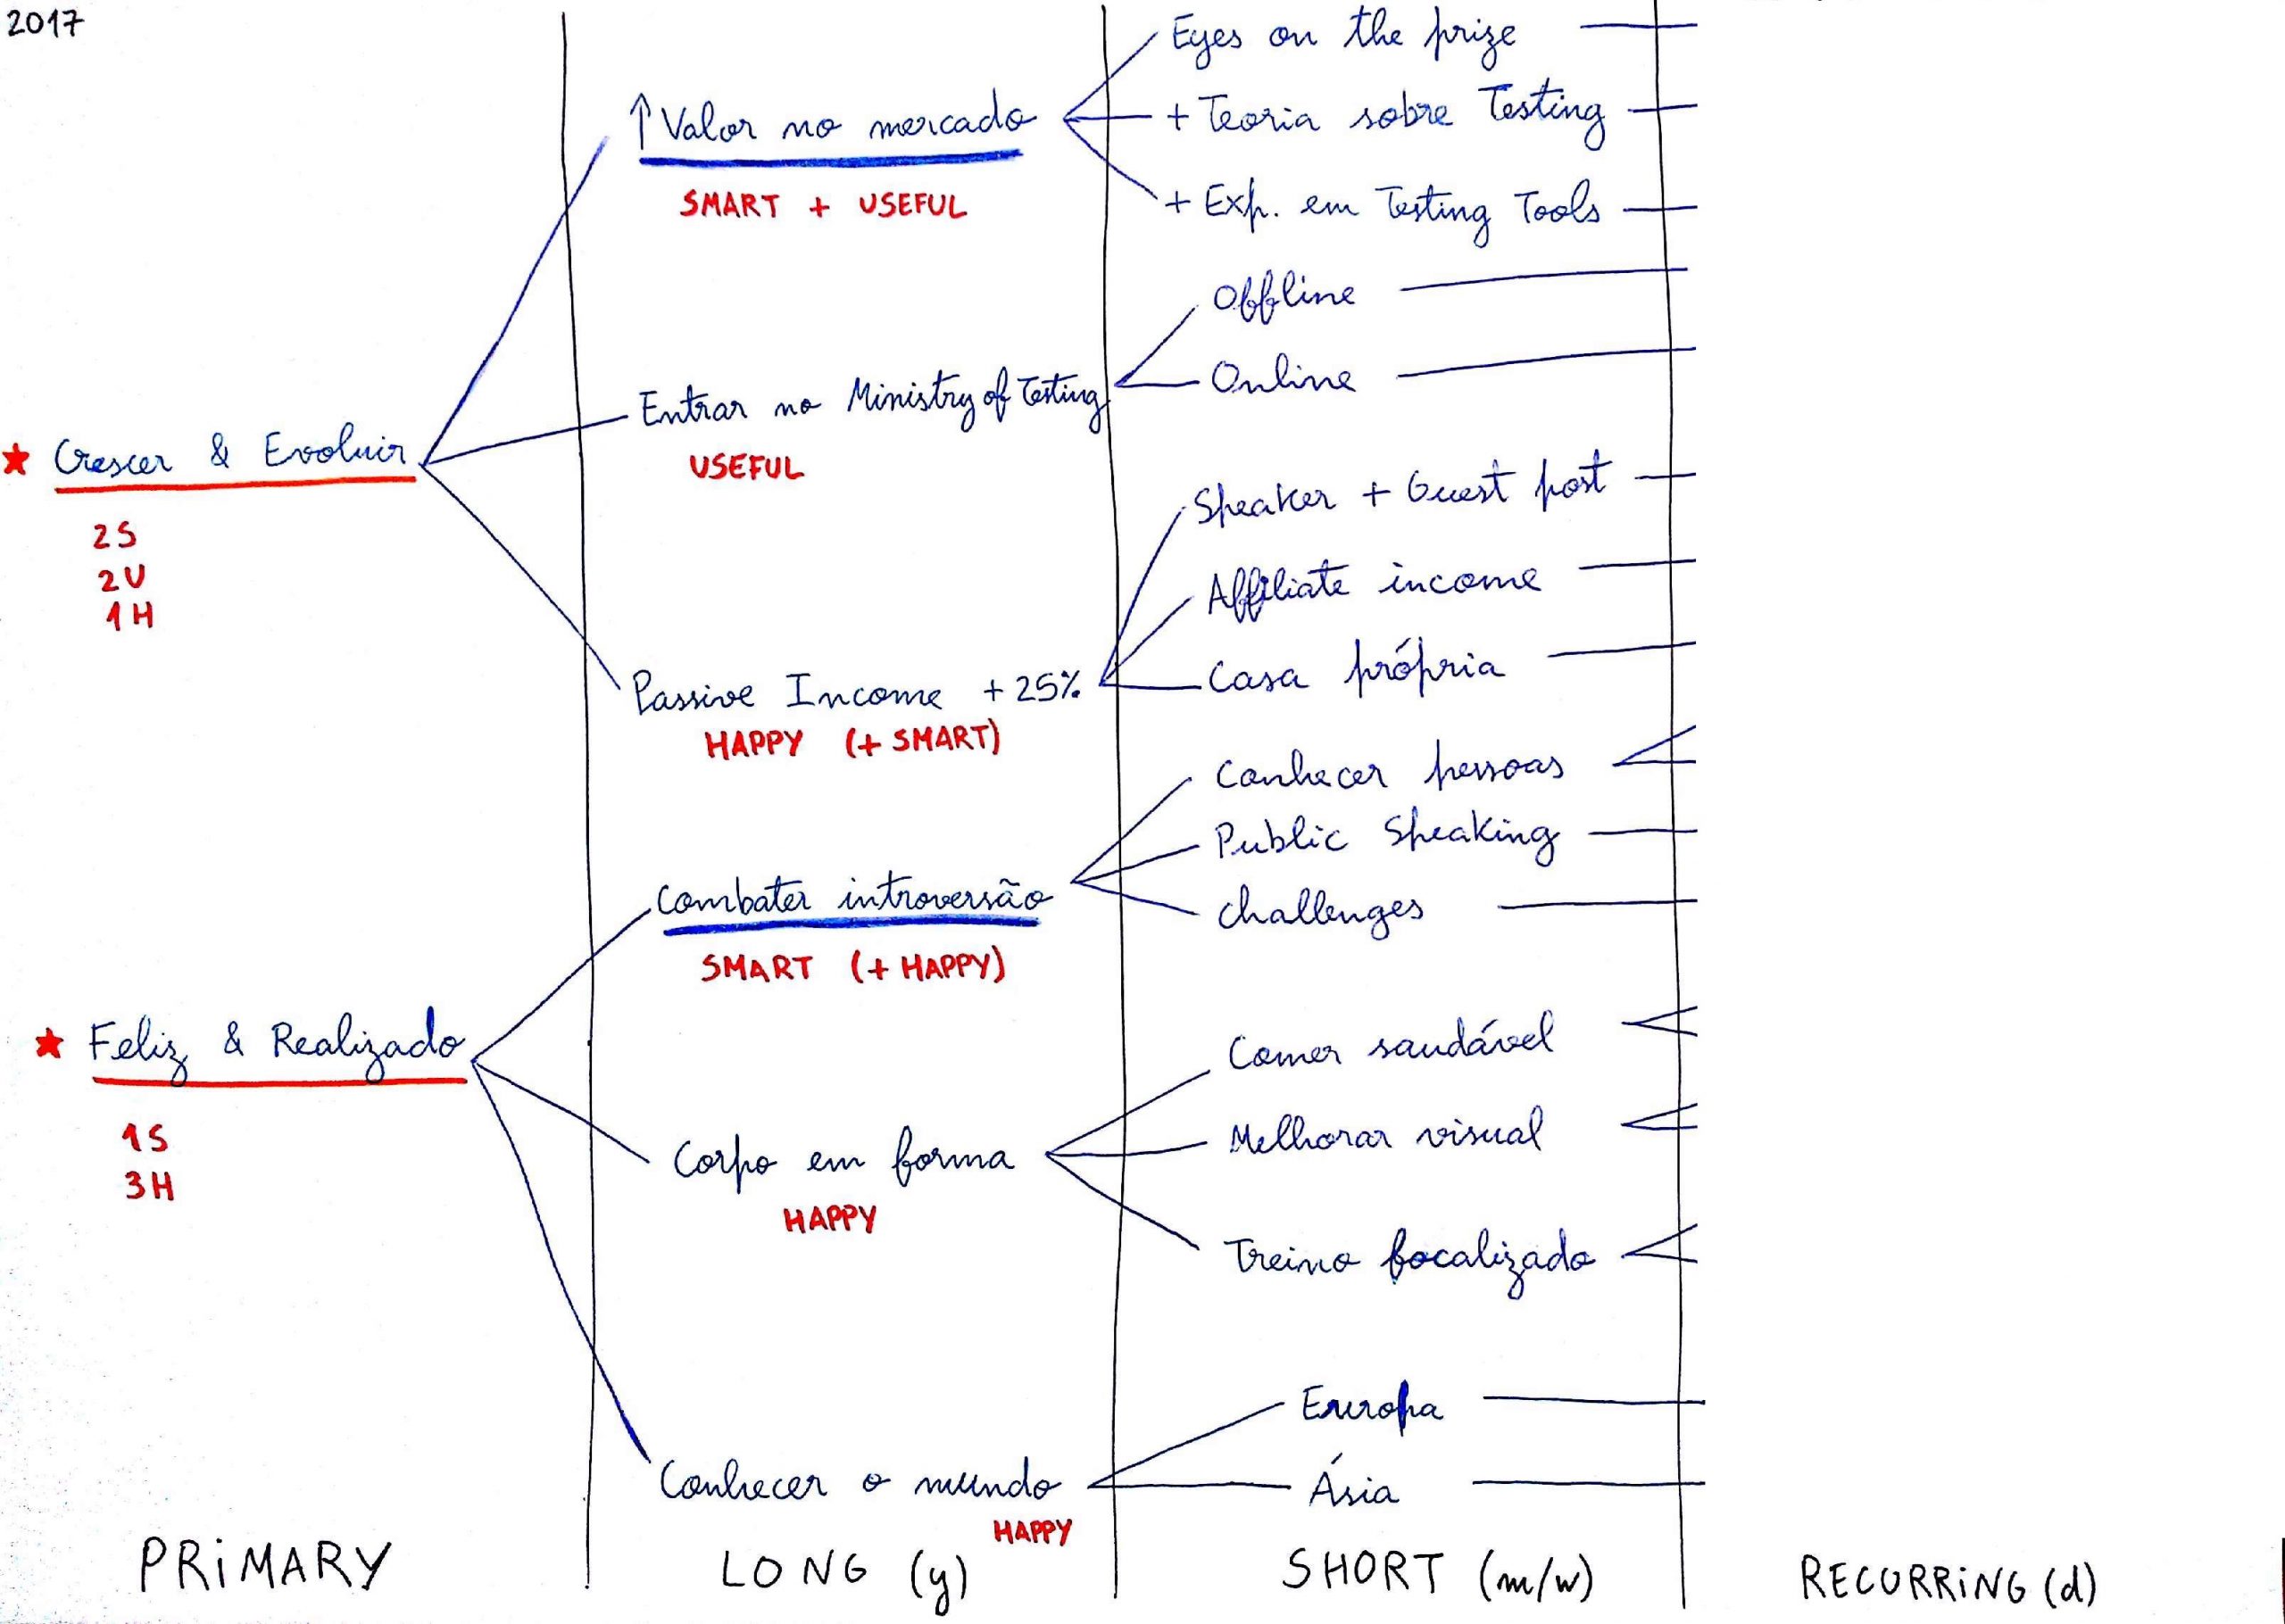 2017
★ Crescer & Evoluir
2S
2U
1H
↑ Valor no mercado
SMART + USEFUL
Eyes on the prize
+ Teoria sobre Testing
+ Exp. em Testing Tools
Entrar no Ministry of Testing
USEFUL
Offline
Online
Passive Income +25%
HAPPY (+ SMART)
Speaker + Guest post
Affiliate income
Casa própria
★ Feliz & Realizado
1S
3H
Combater introversão
SMART (+ HAPPY)
Conhecer pessoas
Public Speaking
Challenges
Corpo em forma
HAPPY
Comer saudável
Melhorar visual
Treino focalizado
Conhecer o mundo
HAPPY
Europa
Ásia
PRiMARY
LONG (y)
SHORT (m/w)
RECURRiNG (d)